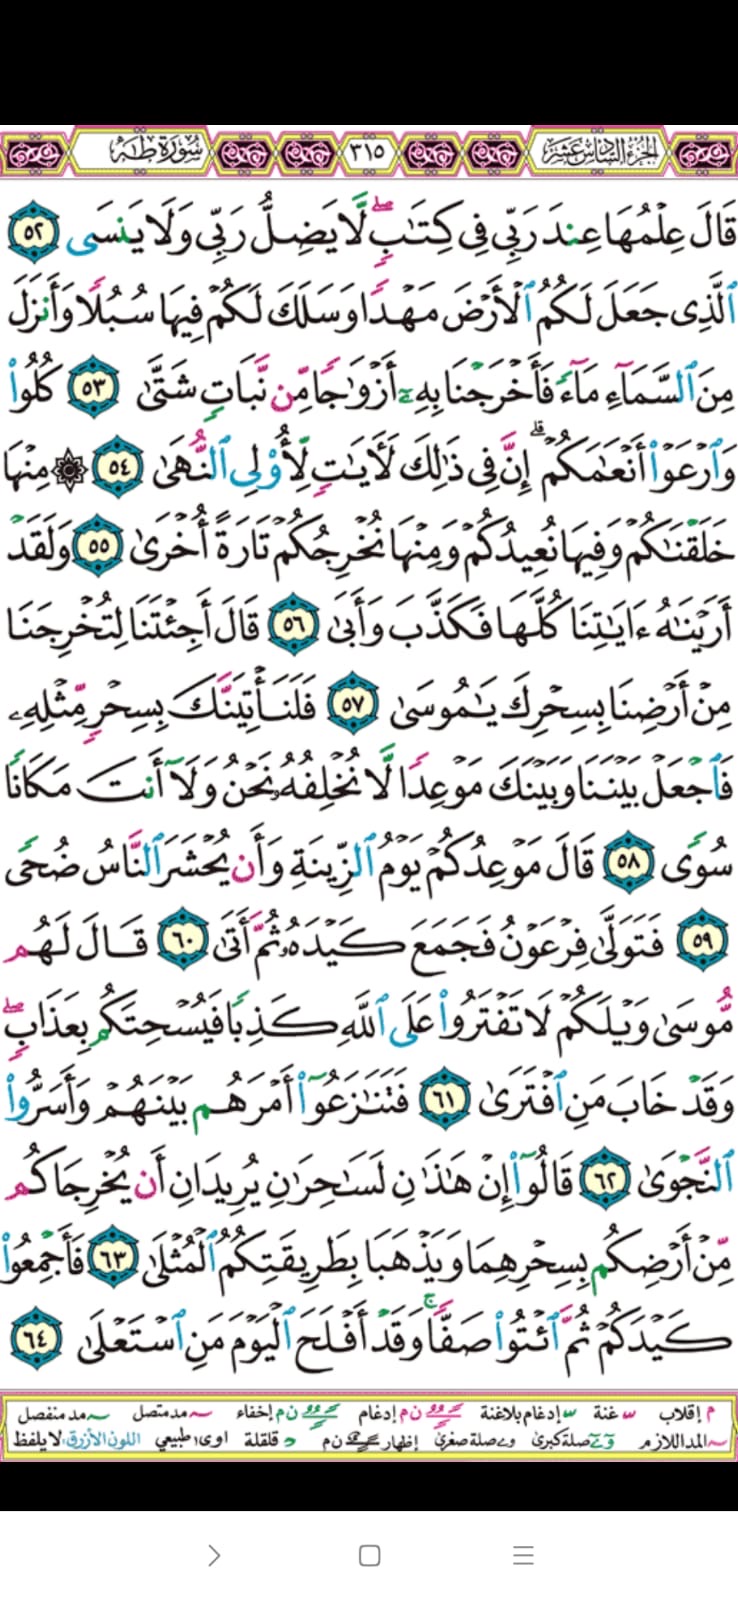 الجزء السادس عشر ٣١٥ سورة طه
قَالَ عِلْمُهَا عِندَ رَبِّى فِى كِتَٰبٍۖ لَّا يَضِلُّ رَبِّى وَلَا يَنسَى ٥٢
ٱلَّذِى جَعَلَ لَكُمُ ٱلْأَرْضَ مَهْدًا وَسَلَكَ لَكُمْ فِيهَا سُبُلًا وَأَنزَلَ
مِنَ ٱلسَّمَآءِ مَآءً فَأَخْرَجْنَا بِهِۦٓ أَزْوَٰجًا مِّن نَّبَاتٍ شَتَّىٰ ٥٣ كُلُوا۟
وَٱرْعَوْا۟ أَنْعَٰمَكُمْۗ إِنَّ فِى ذَٰلِكَ لَءَايَٰتٍ لِّأُو۟لِى ٱلنُّهَىٰ ٥٤ ۞ مِنْهَا
خَلَقْنَٰكُمْ وَفِيهَا نُعِيدُكُمْ وَمِنْهَا نُخْرِجُكُمْ تَارَةً أُخْرَىٰ ٥٥ وَلَقَدْ
أَرَيْنَٰهُ ءَايَٰتِنَا كُلَّهَا فَكَذَّبَ وَأَبَىٰ ٥٦ قَالَ أَجِئْتَنَا لِتُخْرِجَنَا
مِنْ أَرْضِنَا بِسِحْرِكَ يَٰمُوسَىٰ ٥٧ فَلَنَأْتِيَنَّكَ بِسِحْرٍ مِّثْلِهِۦ
فَٱجْعَلْ بَيْنَنَا وَبَيْنَكَ مَوْعِدًا لَّا نُخْلِفُهُۥ نَحْنُ وَلَآ أَنتَ مَكَانًا
سُوًى ٥٨ قَالَ مَوْعِدُكُمْ يَوْمُ ٱلزِّينَةِ وَأَن يُحْشَرَ ٱلنَّاسُ ضُحًى
٥٩ فَتَوَلَّىٰ فِرْعَوْنُ فَجَمَعَ كَيْدَهُۥ ثُمَّ أَتَىٰ ٦٠ قَالَ لَهُم
مُّوسَىٰ وَيْلَكُمْ لَا تَفْتَرُوا۟ عَلَى ٱللَّهِ كَذِبًا فَيُسْحِتَكُم بِعَذَابٍۖ
وَقَدْ خَابَ مَنِ ٱفْتَرَىٰ ٦١ فَتَنَٰزَعُوٓا۟ أَمْرَهُم بَيْنَهُمْ وَأَسَرُّوا۟
ٱلنَّجْوَىٰ ٦٢ قَالُوٓا۟ إِنْ هَٰذَٰنِ لَسَٰحِرَٰنِ يُرِيدَانِ أَن يُخْرِجَاكُم
مِّنْ أَرْضِكُم بِسِحْرِهِمَا وَيَذْهَبَا بِطَرِيقَتِكُمُ ٱلْمُثْلَىٰ ٦٣ فَأَجْمِعُوا۟
كَيْدَكُمْ ثُمَّ ٱئْتُوا۟ صَفًّاۚ وَقَدْ أَفْلَحَ ٱلْيَوْمَ مَنِ ٱسْتَعْلَىٰ ٦٤
م إقلاب غنة إدغام بلاغنة ن م إدغام ن م إخفاء مد متصل مد منفصل
المد اللازم صلة كبرى صلة صغرى إظهار ن م قلقلة اوى طبيعي اللون الأزرق: لا يلفظ